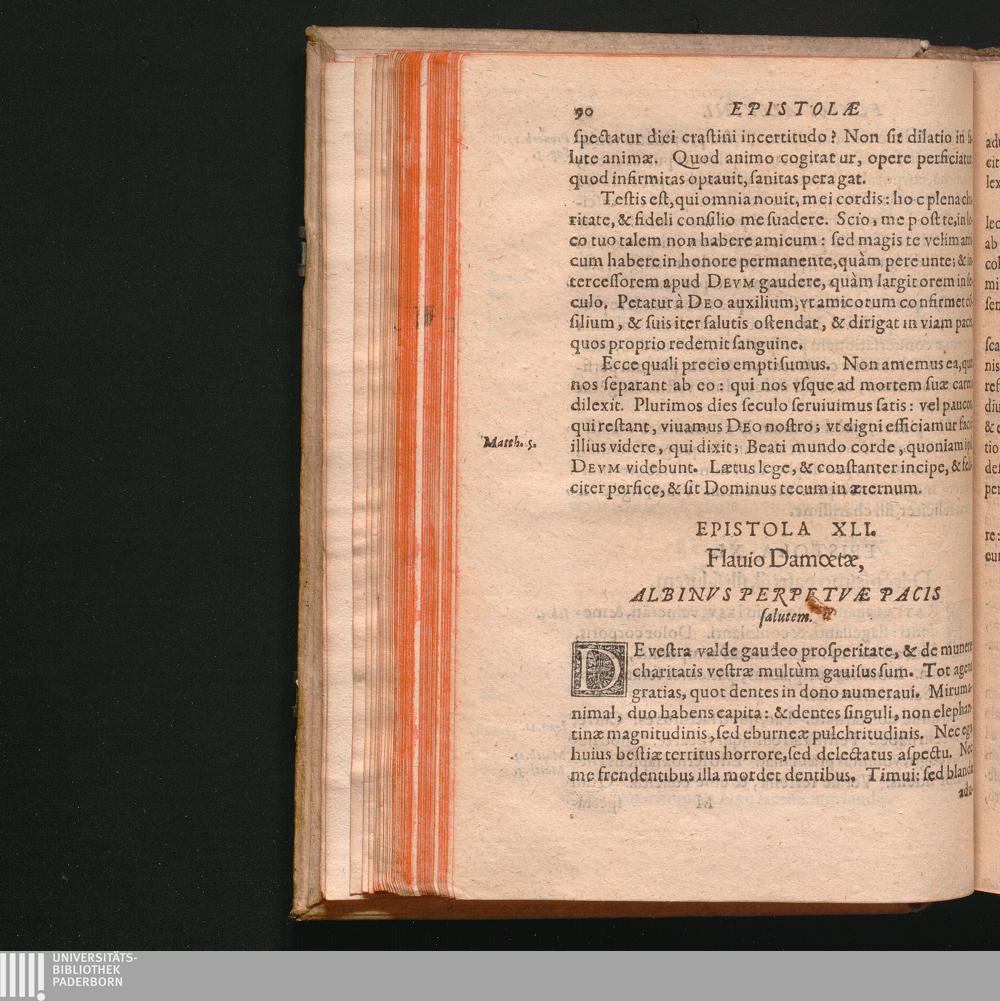 90 EPISTOLÆ
ſpectatur diei craſtini incertitudo? Non ſit dilatio in
lute animæ. Quod animo cogitatur, opere perficiatur
quod infirmitas optauit, ſanitas peragat.
Teſtis eſt, qui omnia nouit, mei cordis: hoc plena
ritate, & fideli conſilio me ſuadere. Scio, me poſt te, in
co tuo talem non habere amicum: ſed magis te velim
cum habere in honore permanente, quàm pereunte; &
terceſſorem apud DEVM gaudere, quàm largitorem in
culo. Petatur à DEO auxilium, vt amicorum confirmet
ſilium, & ſuis iter ſalutis oſtendat, & dirigat in viam pacis
quos proprio redemit ſanguine.
Ecce quali precio empti ſumus. Non amemus ea,
nos ſeparant ab eo: qui nos vſque ad mortem ſuæ
dilexit. Plurimos dies ſeculo ſeruiuimus ſatis: vel paucos
qui reſtant, viuamus DEO noſtro; vt digni efficiamur
Matth. 5.
illius videre, qui dixit; Beati mundo corde, quoniam
DEVM videbunt. Lætus lege, & conſtanter incipe, &
citer perfice, & ſit Dominus tecum in æternum.
EPISTOLA XLI.
Flauio Damœtæ,
ALBINVS PERPETVÆ PACIS
ſalutem.
DE veſtra valde gaudeo proſperitate, & de munere
charitatis veſtræ multùm gauiſus ſum. Tot agens
gratias, quot dentes in dono numeraui. Mirum a-
nimal, duo habens capita: & dentes ſinguli, non elephan-
tinæ magnitudinis, ſed eburneæ pulchritudinis. Nec ego
huius beſtiæ territus horrore, ſed delectatus aſpectu. Nec
me frendentibus illa mordet dentibus. Timui: ſed blanda
adu-
UNIVERSITÄTS-
BIBLIOTHEK
PADERBORN